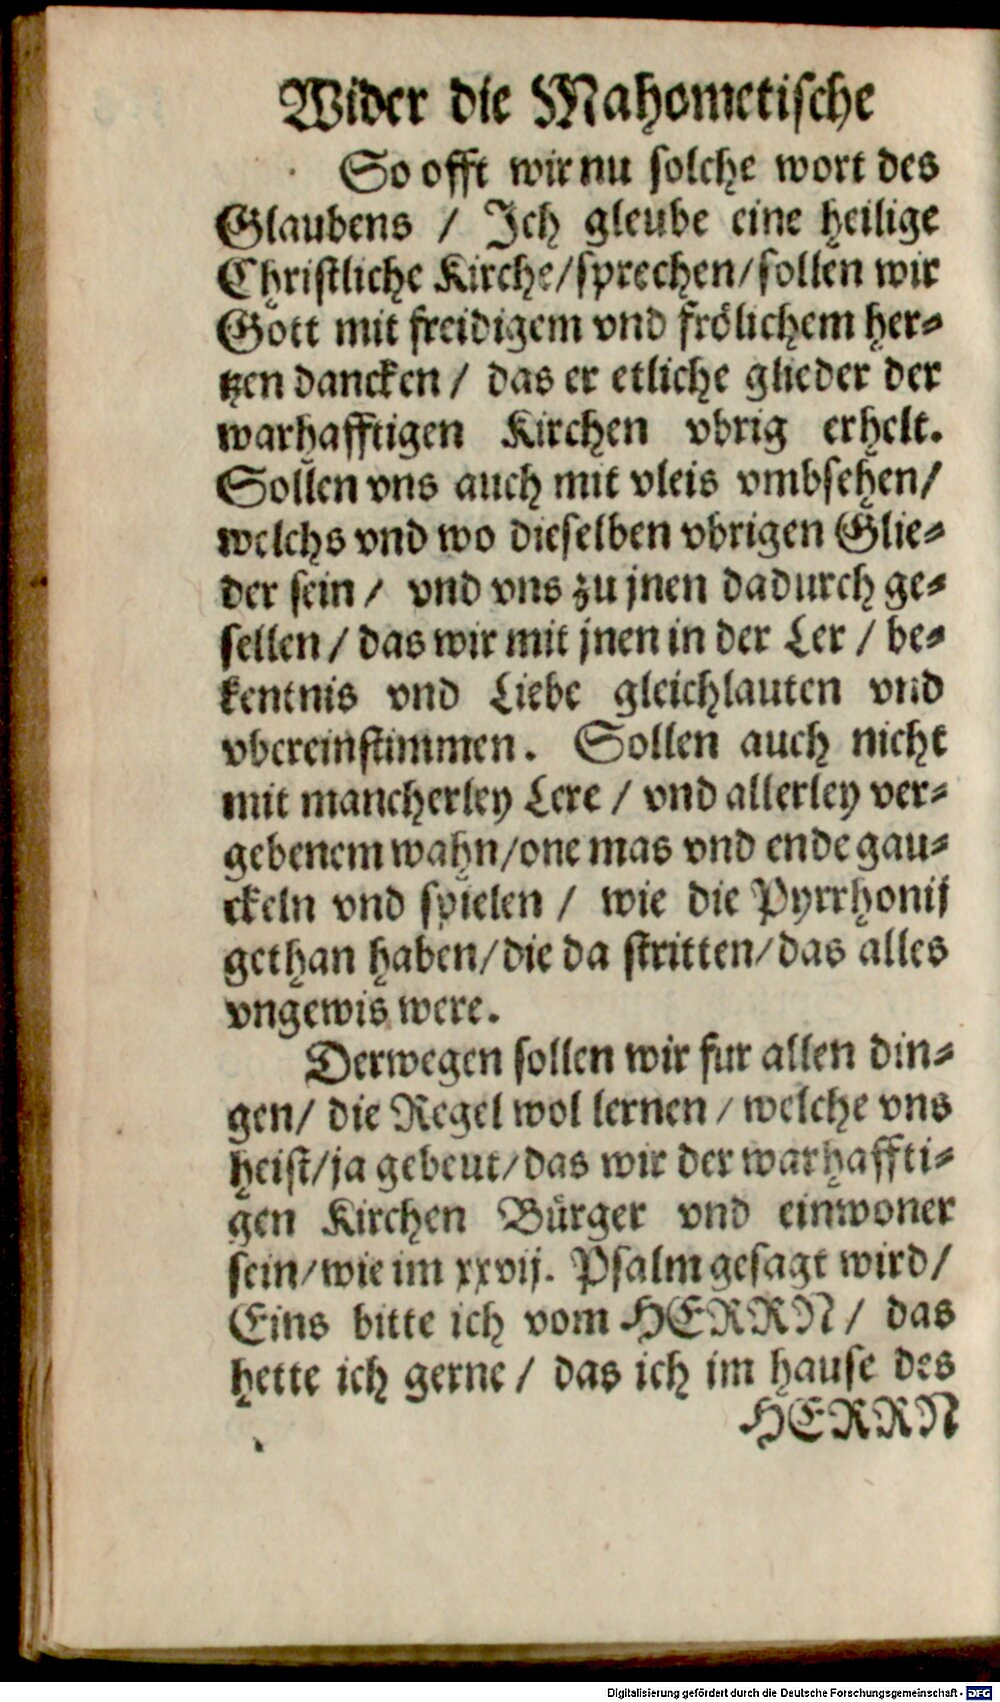 Wider die Mahometische
So offt wir nu solche wort des
Glaubens / Ich gleube eine heilige
Christliche Kirche/sprechen/sollen wir
Gott mit freidigem vnd frölichem her⸗
tzen dancken / das er etliche glieder der
warhafftigen Kirchen vbrig erhelt.
Sollen vns auch mit vleis vmbsehen/
welchs vnd wo dieselben vbrigen Glie⸗
der sein / vnd vns zu jnen dadurch ge⸗
sellen / das wir mit jnen in der Ler / be⸗
kentnis vnd Liebe gleichlauten vnd
vbereinstimmen. Sollen auch nicht
mit mancherley Lere / vnd allerley ver⸗
gebenem wahn/one mas vnd ende gau⸗
ckeln vnd spielen / wie die Pyrrhonij
gethan haben/die da stritten/das alles
vngewis were.
Derwegen sollen wir fur allen din⸗
gen/ die Regel wol lernen / welche vns
heist/ja gebeut/das wir der warhaffti⸗
gen Kirchen Bürger vnd einwoner
sein/wie im xxvij. Psalm gesagt wird/
Eins bitte ich vom HERRN / das
hette ich gerne / das ich im hause des
HERRN
Digitalisierung gefördert durch die Deutsche Forschungsgemeinschaft - DFG